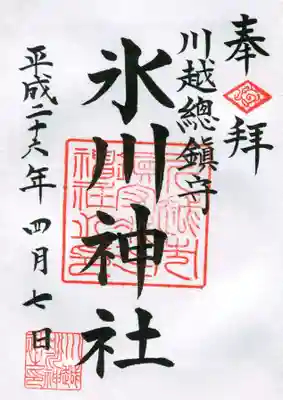 奉拜
川越總鎮守
氷川神社
平成二十六年四月七日